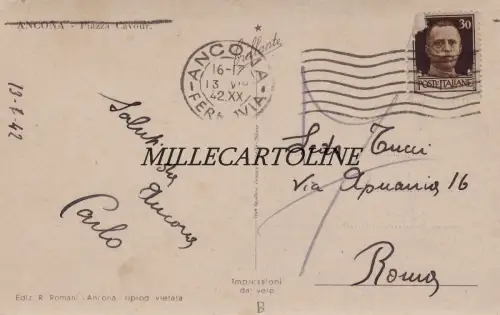 ANCONA - Piazza Cavour.
13-8-42
Saluti da
Ancona
Carlo
Ediz. R. Romani - Ancona - riprod. vietata
ANCONA
16-17
13 VIII
42.XX
FERROVIA
Brillante
30
POSTE ITALIANE
MILLECARTOLINE
Tucci
Via Apuania 16
Roma
Impressioni
dal vero
B